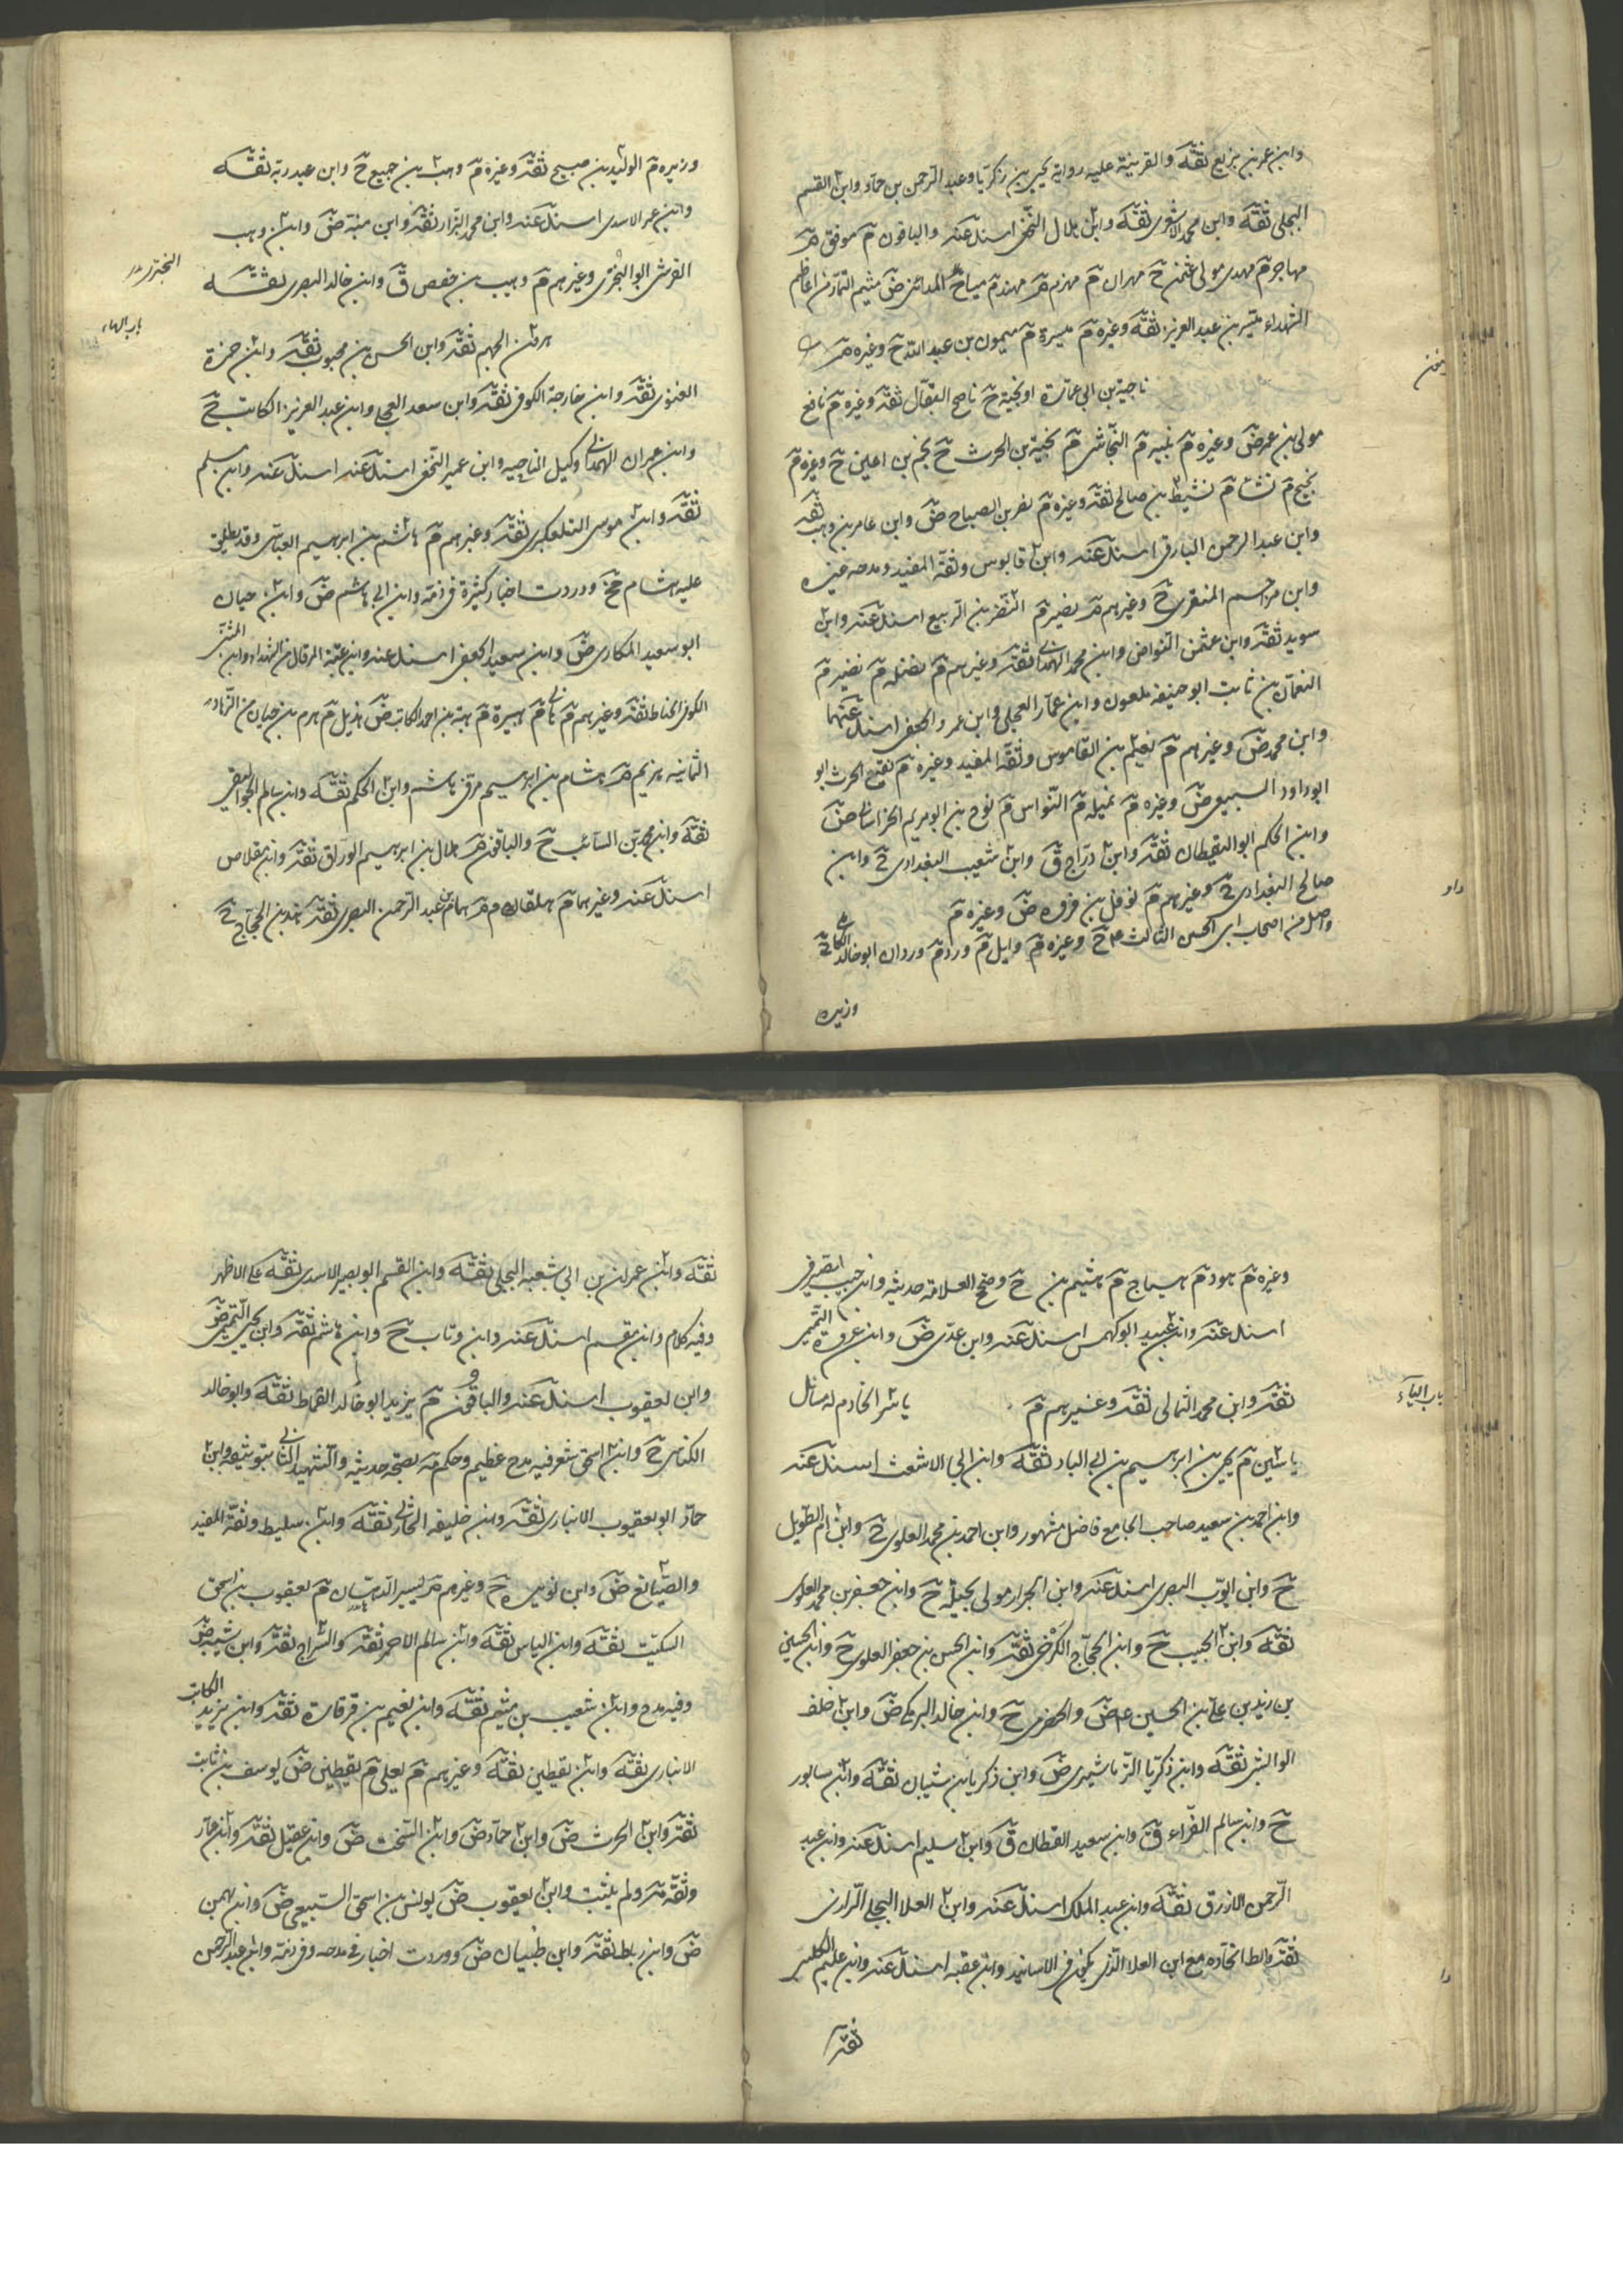 وابن عمر بن بزيع ثقة والقرينة عليه رواية يحيى بن زكريا وعبد الرحمن بن حماد وابن القسم
البجلي ثقة وابن محمد الاشعري ثقة وابن هلال النخعي اسند عنه والباقون م موفق
مهاجر م مهدي مولى عثمن ح مهران م مهزم مهند م مياح المدائني ض ميثم التمار من اعاظم
الشهداء ميسر بن عبد العزيز ثقة وغيره م ميسرة م ميمون بن عبد الله ح وغيره
ناجية بن ابي عمارة او نجية ح ناصح البقال ثقة وغيره م نافع
مولى ابن عمر ض وغيره م نبيه م النجاشي م نجية بن الحرث ح نجم بن اعين ح وغيره م
نجيح م نشيط بن صالح ثقة وغيره م نصر بن الصباح ض وابن عامر بن وهب ثقة
وابن عبد الرحمن البارقي اسند عنه وابن قابوس وثقه المفيد ومدحه غيره
وابن مزاحم المنقري ح وغيرهم نصير م النضر بن الربيع اسند عنه وابن
سويد ثقة وابن عثمن النوا ض وابن محمد الهمداني ثقة وغيرهم م نضلة م نضير م
النعمان بن ثابت ابو حنيفة ملعون وابن عمار العجلي وابن عمرو الجعفي اسند عنهما
وابن محمد ض وغيرهم م نعيم بن القابوس وثقه المفيد وغيره م نفيع الحرث ابو
ابو داود السبيعي ض وغيره م نميلة م النواس م نوح بن ابو مريم الخراساني ض
وابن الحكم ابو اليقظان ثقة وابن دراج ق وابن شعيب البغدادي ح وابن
صالح البغدادي ح وغيرهم م نوفل بن فروة ض وغيره م
واصل من اصحاب ابي الحسن الثالث ع ح وغيره م وايل م ورد م وردان ابو خالد الكابلي ح
وزيره
وزيره م الوليد بن صبيح ثقة وغيره م وهب بن جميع ح وابن عبد ربه ثقة
وابن عمر الاسدي اسند عنه وابن محمد البزار ثقة وابن منبه ض وابن وهب
القرشي ابو البختري وغيرهم م وهيب بن حفص ق وابن خالد البصري ثقة
البختري
باب الهاء
هرون الجهم ثقة وابن الحسن بن محبوب ثقة وابن حمزة
الغنوي ثقة وابن خارجة الكوفي ثقة وابن سعد العجلي وابن عبد العزيز الكاتب ح
وابن عمران الهمداني وكيل الناحيه وابن عمير النخعي اسند عنه اسند عنه وابن مسلم
ثقة وابن موسى التلعكبري ثقة وغيرهم م هاشم بن ابرهيم العباسي وقد يطلق
عليه هشام ووردت اخبار كثيرة في ذمه وابن ابي هاشم ض وابن حيان
ابو سعيد المكاري ض وابن سعيد الجعفي اسند عنه وابن عتبة المرقال من الشهداء وابن المثنى
الكوفي الحناط ثقة وغيرهم م هاني م هبيرة م هبة بن احمد الكاتب ض هذيل م هرم بن حيان من الزهاد
الثمانيه هزيم هشام بن ابرهيم مر في هاشم وابن الحكم ثقة وابن سالم الجواليقي
ثقة وابن محمد بن السائب ح والباقون هلال بن ابرهيم الوراق ثقة وابن مقلاص
اسند عنه وغيرهما م هلقام م همام بن عبد الرحمن البصري ثقة هند بن الحجاج ح
وغيره م هود م هياج م هيثم بن ح وصحح العلامة حديثه وابن حبيب الصيرفي
اسند عنه وابن عبيد ابو كهمس اسند عنه وابن عدي ض وابن عروة التميمي
ثقة وابن محمد الثمالي ثقة وغيرهم م
ياسر الخادم له مسائل
باب الياء
ياسين م يحيى بن ابرهيم بن ابي البلاد ثقة وابن ابي الاشعث اسند عنه
وابن احمد بن سعيد صاحب الجامع فاضل مشهور وابن احمد بن محمد العلوي ح وابن ام الطويل
ح وابن ايوب البصري اسند عنه وابن الجرار مولى بجيلة ح وابن جعفر بن محمد العلوي
ثقة وابن الحبيب ح وابن الحجاج الكرخي ثقة وابن الحسن بن جعفر العلوي ح وابن الحسين
بن زيد بن علي بن الحسين ع ض والحضرمي ح وابن خالد البرمكي ض وابن خلف
الوابشي ثقة وابن زكريا الترماشيري ض وابن زكريا بن شيبان ثقة وابن سابور
ح وابن سالم الفراء ق وابن سعيد القطان ق وابن سليم اسند عنه وابن عبد
الرحمن الازرق ثقة وابن عبد الملك اسند عنه وابن العلا البجلي الرازي
ثقة والظ اتحاده مع ابن العلا الذي يجئ في الاسانيد وابن عقبه اسند عنه وابن عليم الكلبي
ثقة
ثقة وابن عمران بن ابي شعبه الحلبي ثقة وابن القسم ابو بصير الاسدي ثقة على الاظهر
وفيه كلام وابن مقسم اسند عنه وابن وثاب ح وابن هاشم ثقة وابن يحيى التميمي ض
وابن يعقوب اسند عنه والباقون م يزيد ابو خالد القماط ثقة وابو خالد
الكناسي ح وابن اسحق شعر فيه مدح عظيم وحكم بصحة حديثه والشهيد الثاني بتوثيقه وابن
حماد ابو يعقوب الانباري ثقة وابن خليفه الحارثي ثقة وابن سليط وثقه المفيد
والصايغ ض وابن نويره ح وغيرهم يسير الدهان م يعقوب بن اسحق
السكيت ثقة وابن الياس ثقة وابن سالم الاحمر ثقة والسراج ثقة وابن شيبه ض
وفيه مدح وابن شعيب بن ميثم ثقة وابن نعيم بن قرقارة ثقة وابن يزيد الكاتب
الانباري ثقة وابن يقطين ثقة وغيرهم م يعلى م يقطين ض يوسف بن ثابت
ثقة وابن الحرث ض وابن حماد ض وابن السخت ض وابن عقيل ثقة وابن عمار
وثقه ولم يثبت وابن يعقوب ض يونس بن اسحق السبيعي ض وابن بهمن
ض وابن رباط ثقة وابن ظبيان ض ووردت اخبار في مدحه وفي ذمه وابن عبد الرحمن